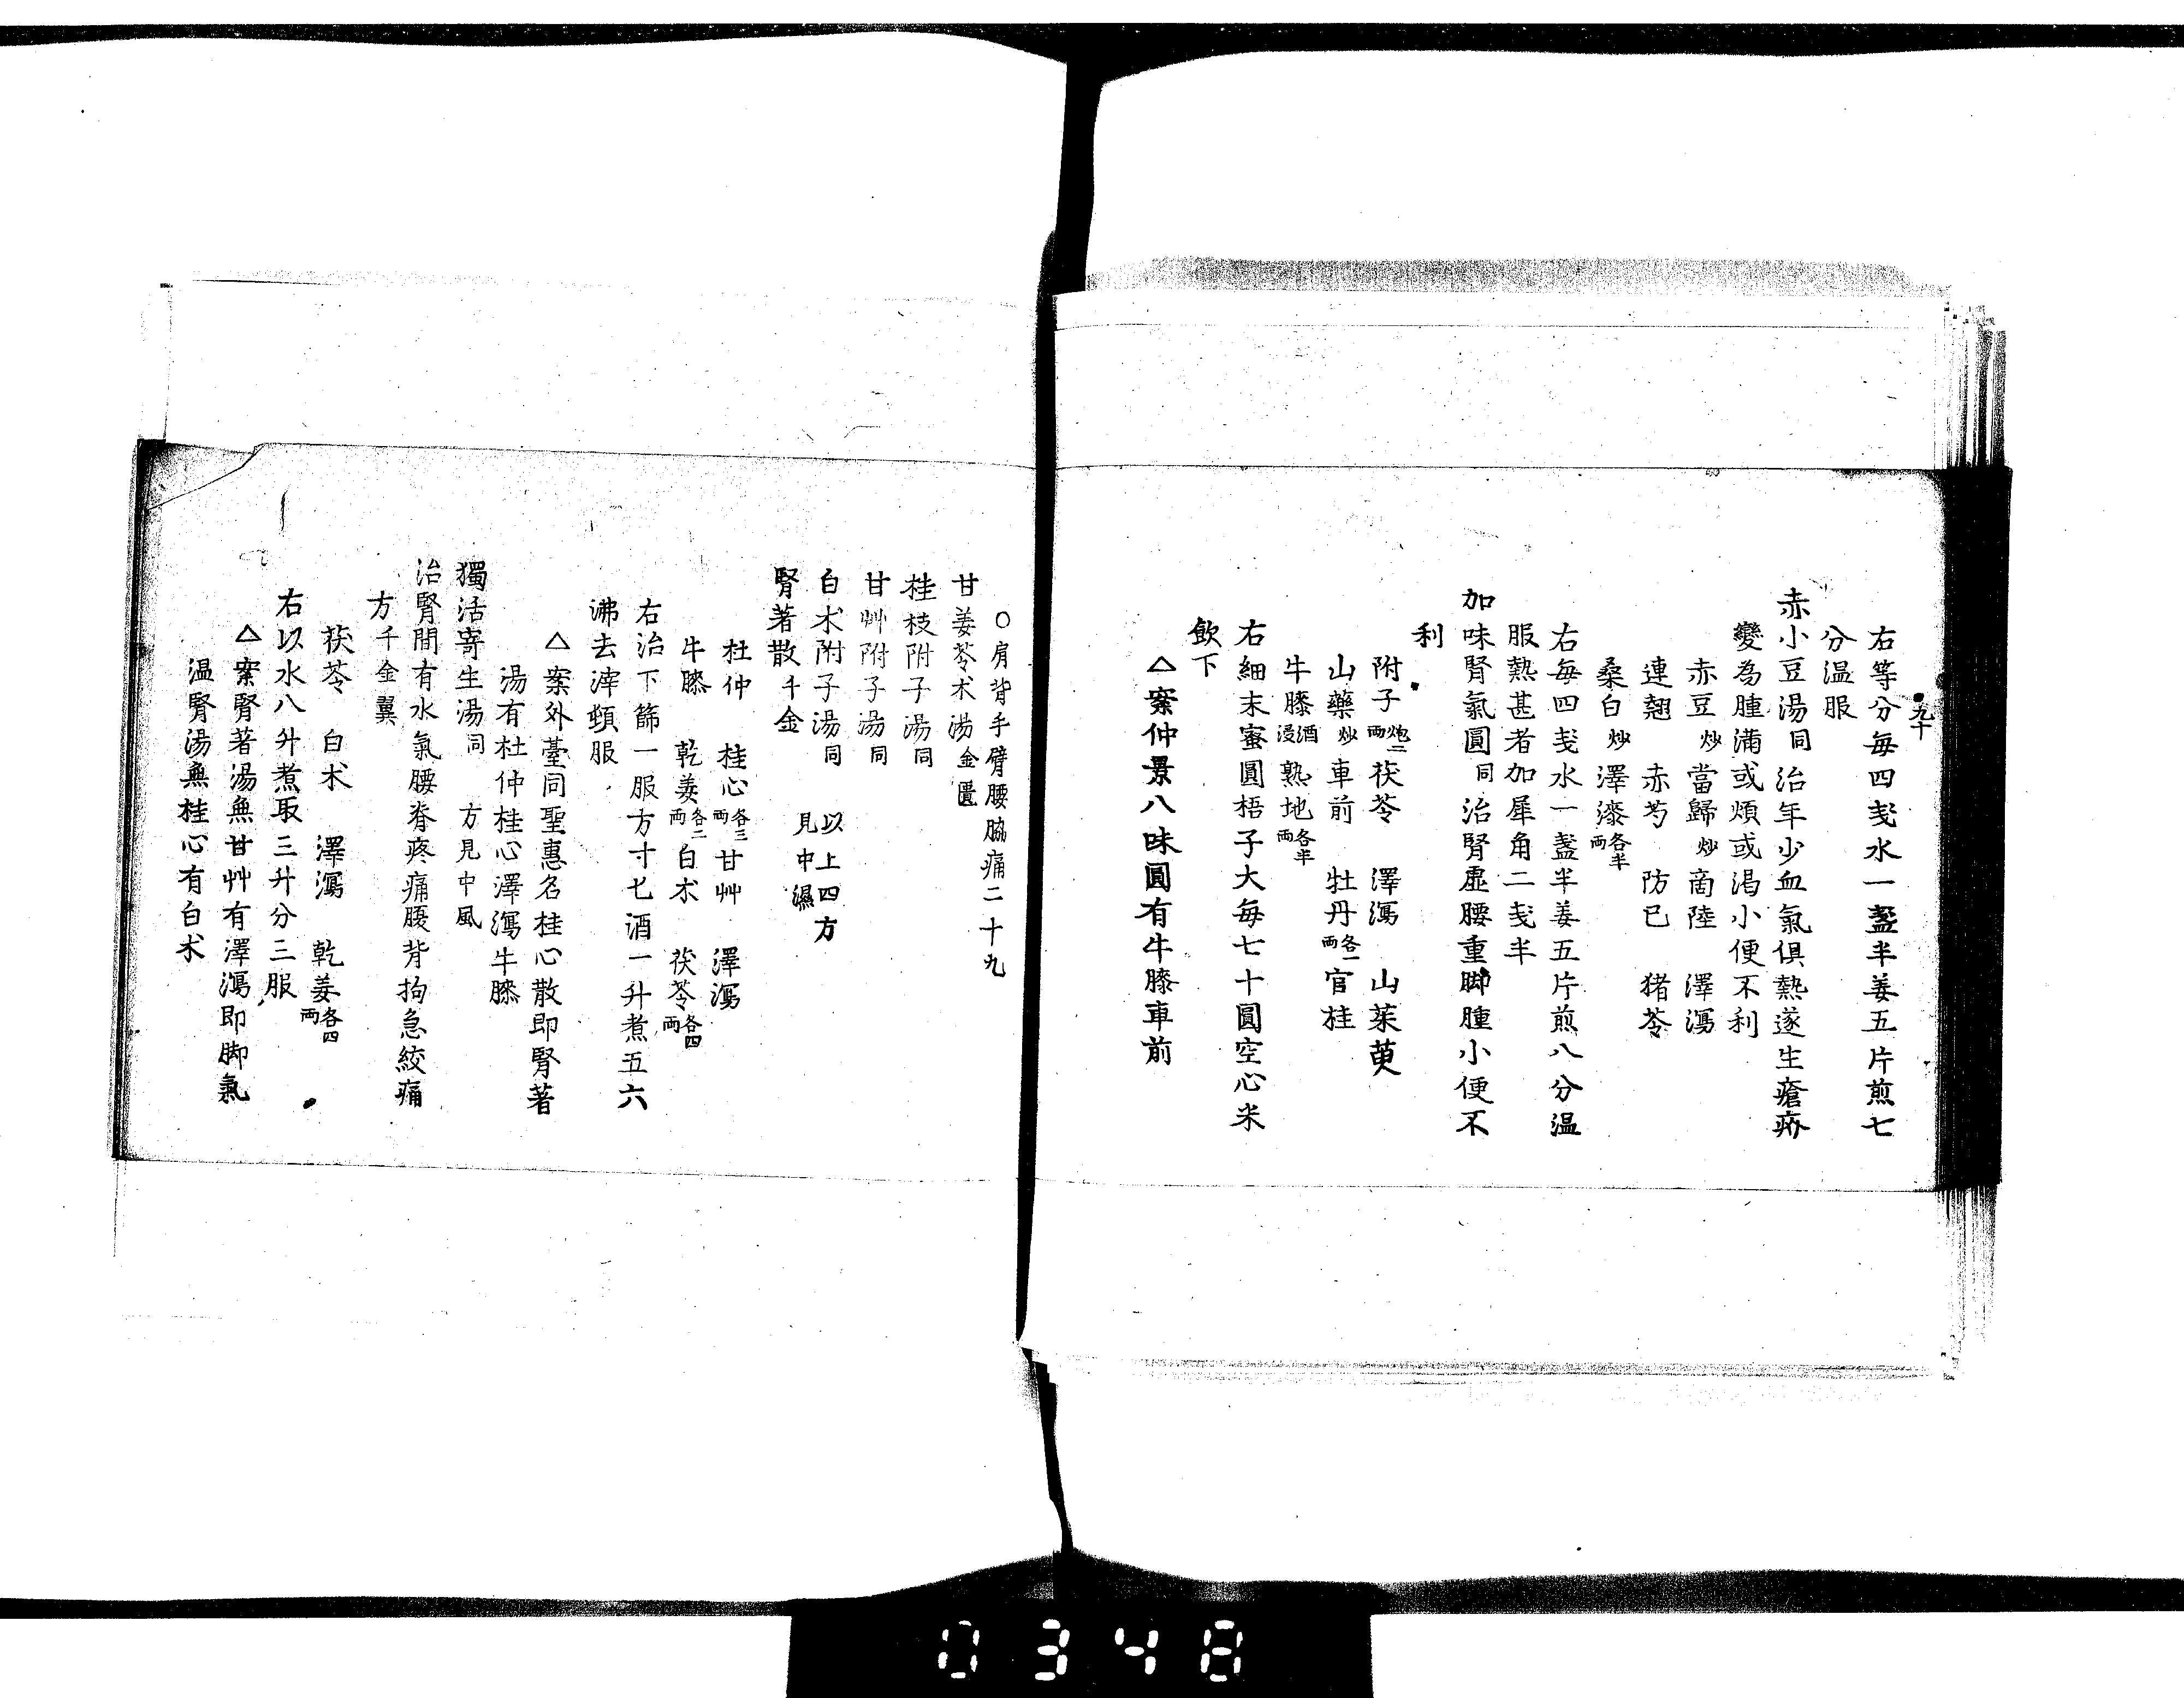 九十
右等分每四戔水一盞半姜五片煎七
分温服
赤小豆湯同 治年少血氣俱熱遂生瘡疥
變為腫滿或煩或渴小便不利
赤豆炒 當歸炒 商陸 澤瀉
連翹 赤芍 防已 猪苓
桑白炒 澤漆各半両
右每四戔水一盞半姜五片煎八分温
服熱甚者加犀角二戔半
加味腎氣圓同 治腎虛腰重脚腫小便不
利
附子炮二両 茯苓 澤瀉 山茱萸
山藥炒 車前 牡丹各一両 官桂
牛膝酒浸 熟地各半両
右細末蜜圓梧子大每七十圓空心米
飲下
△案仲景八味圓有牛膝車前
○肩背手臂腰脇痛二十九
甘姜苓朮湯金匱
桂枝附子湯同
甘艸附子湯同
白朮附子湯同 以上四方見中濕
腎著散千金
杜仲 桂心各三両 甘艸 澤瀉
牛膝 乾姜各二両 白朮 茯苓各四両
右治下篩一服方寸匕酒一升煮五六
沸去滓頓服
△案外臺同聖惠名桂心散即腎著
湯有杜仲桂心澤瀉牛膝
獨活寄生湯同 方見中風
治腎間有水氣腰脊疼痛腰背拘急絞痛
方千金翼
茯苓 白朮 澤瀉 乾姜各四両
右以水八升煮取三升分三服
△案腎著湯無甘艸有澤瀉即脚氣
温腎湯無桂心有白朮
0348